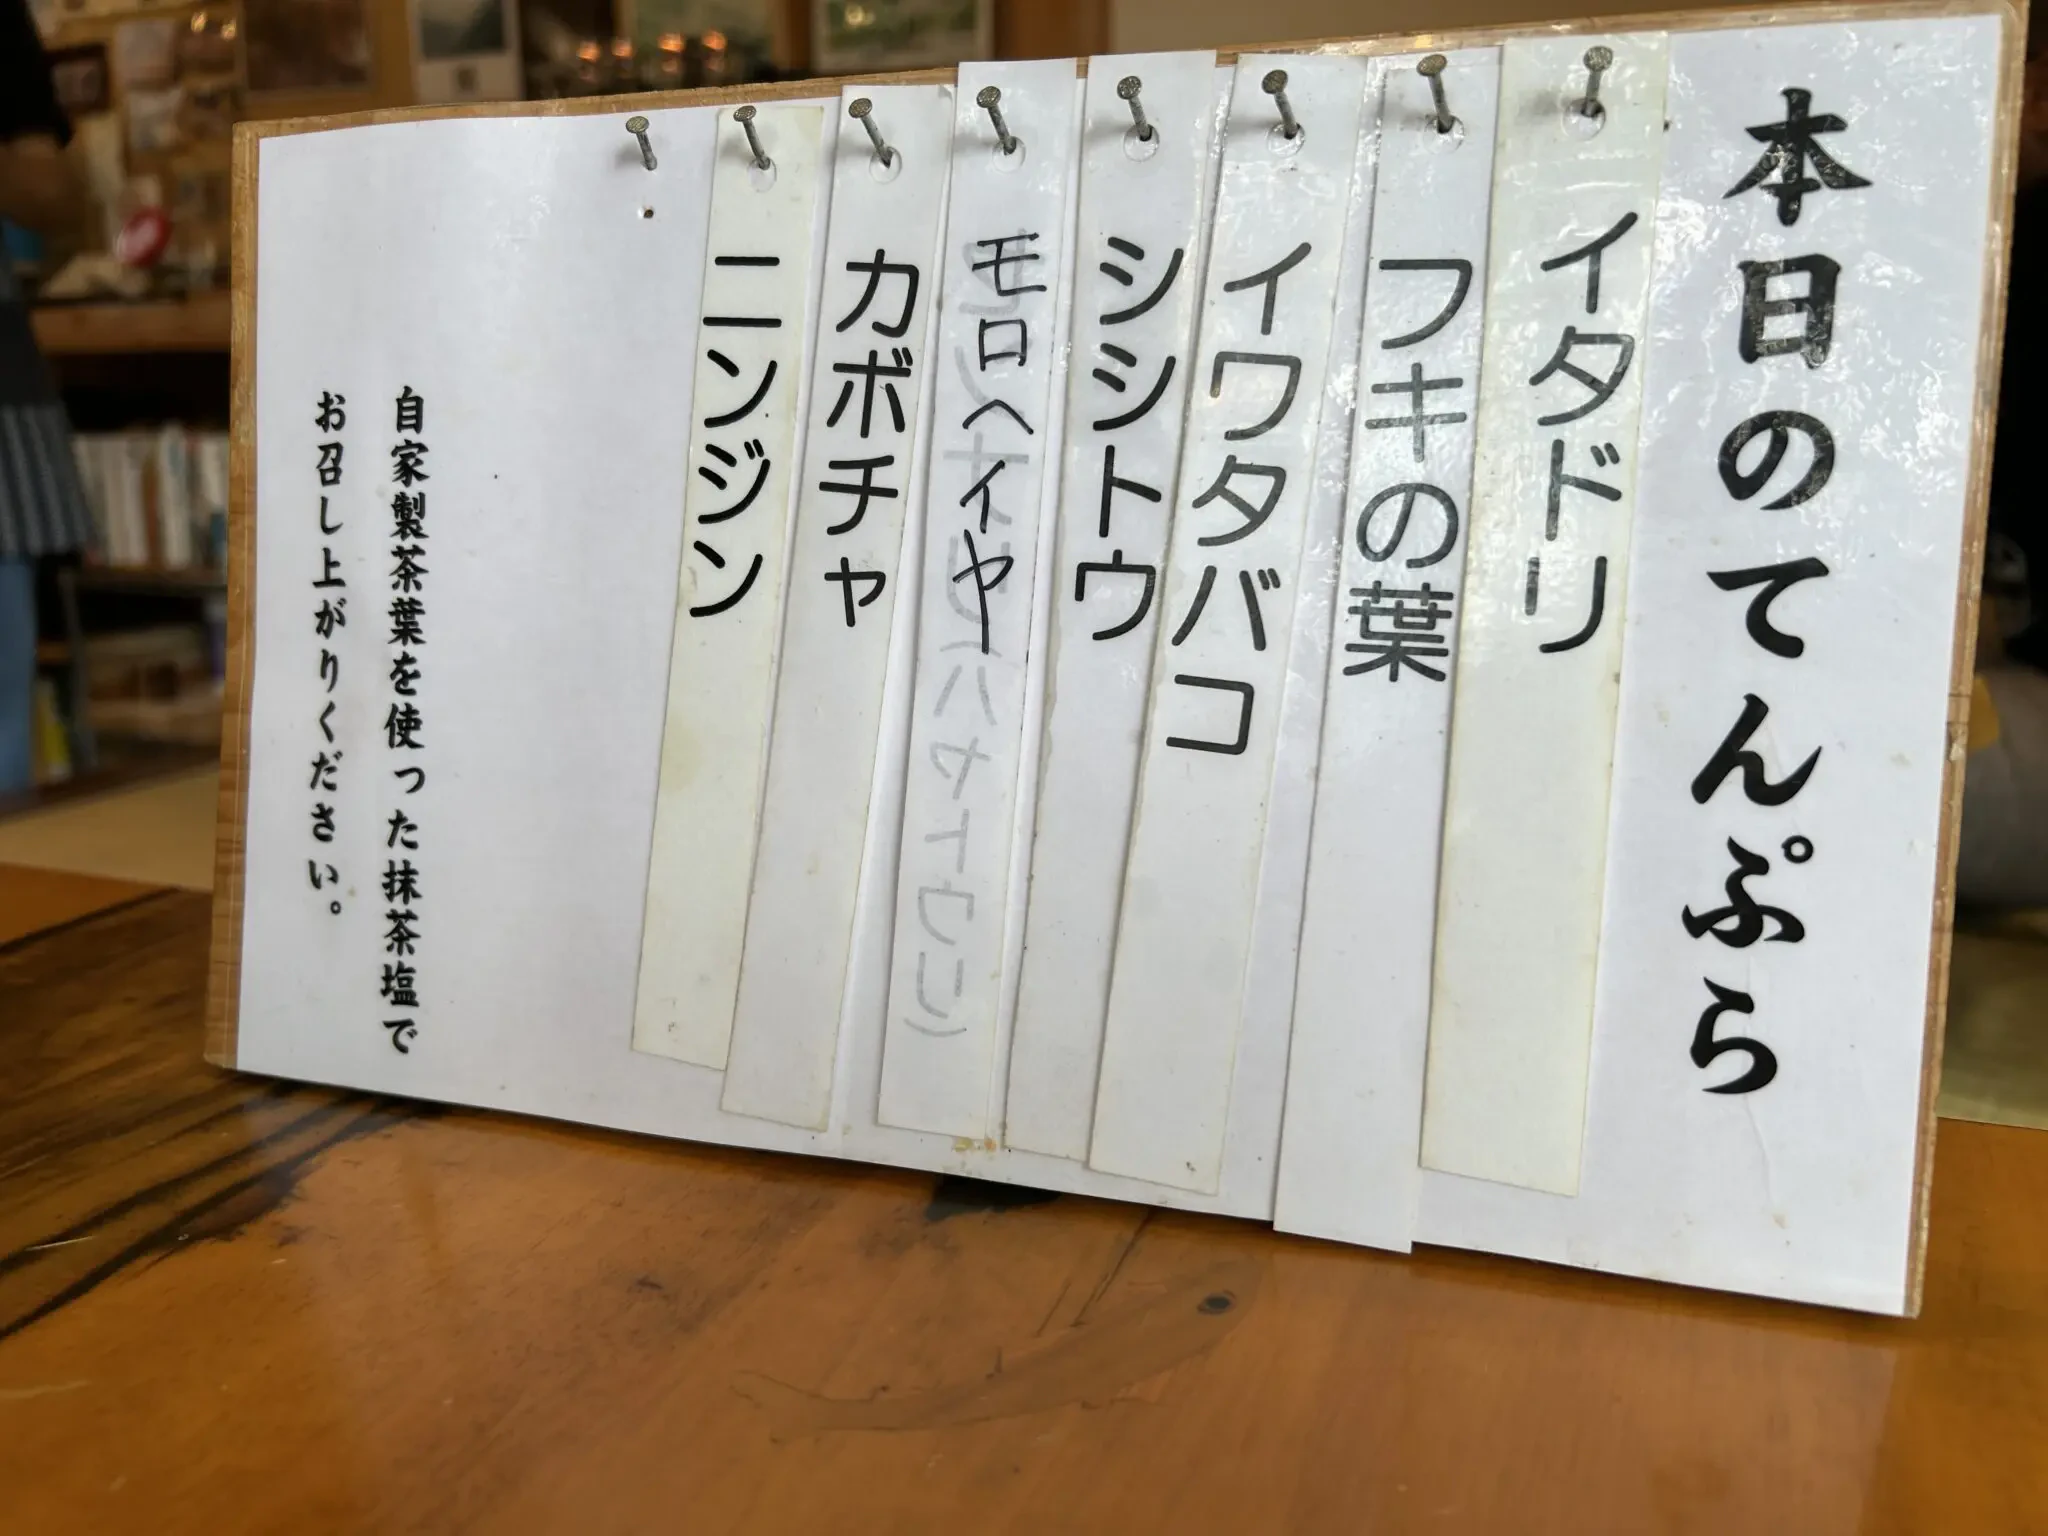 本日のてんぷら
イタドリ
フキの葉
イワタバコ
シシトウ
モロヘイヤ
カボチャ
ニンジン
自家製茶葉を使った抹茶塩で
お召し上がりください。